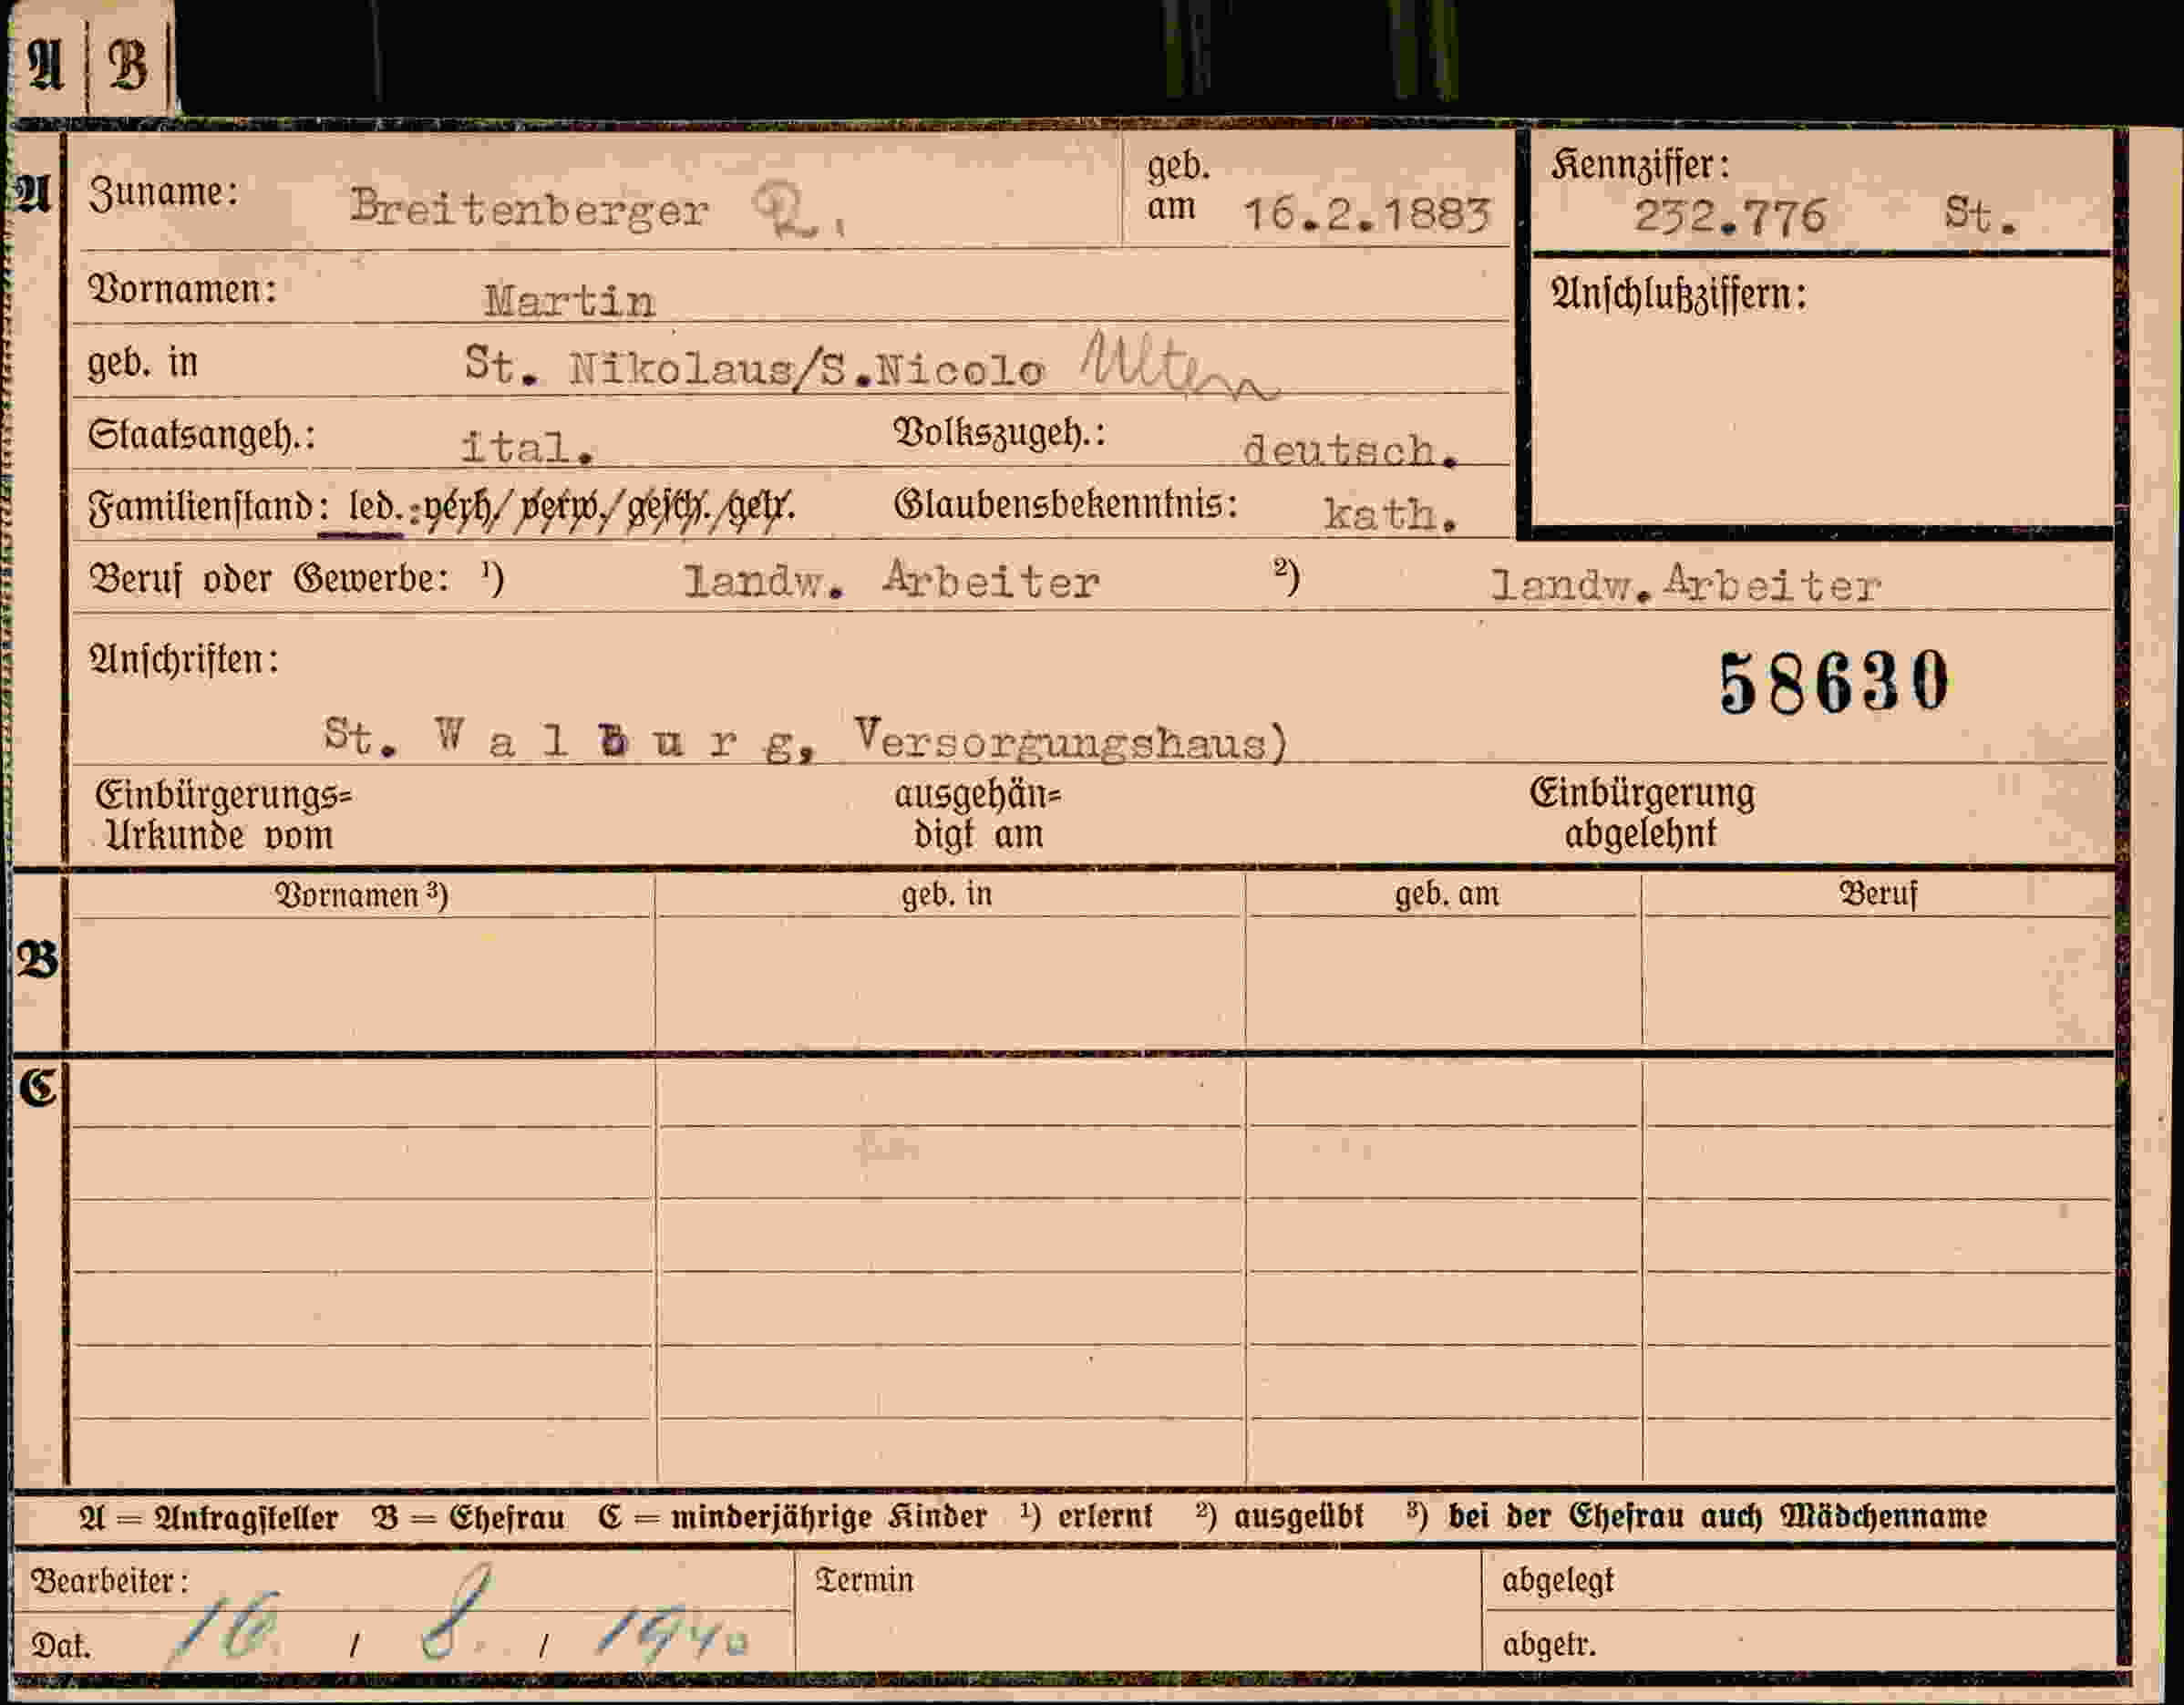 A | B
A
Zuname: Breitenberger R.
geb. am 16.2.1883
Kennziffer:
232.776 St.
Vornamen: Martin
Anschlußziffern:
geb. in St. Nikolaus/S.Nicolo Ulten
Staatsangeh.: ital. Volkszugeh.: deutsch.
Familienstand: led.:verh/verw./gesch./getr. Glaubensbekenntnis: kath.
Beruf oder Gewerbe: ¹) landw. Arbeiter ²) landw.Arbeiter
Anschriften:
58630
St. W a l b u r g, Versorgungshaus)
Einbürgerungs= ausgehän= Einbürgerung
Urkunde vom digt am abgelehnt
Vornamen ³) geb. in geb. am Beruf
B
C
A = Antragsteller B = Ehefrau C = minderjährige Kinder ¹) erlernt ²) ausgeübt ³) bei der Ehefrau auch Mädchenname
Bearbeiter: Termin abgelegt
Dat. 16 / 8. / 1940 abgetr.